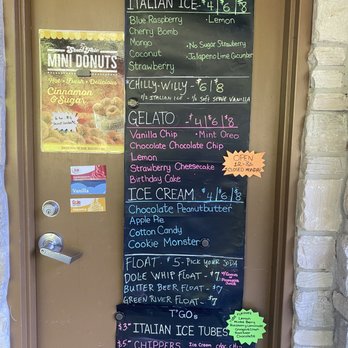 ITALIAN ICE - $4|6|8
Blue Raspberry • Lemon
Cherry Bomb
Mango • No Sugar Strawberry
Coconut • Jalapeno Lime Cucumber
Strawberry
"CHILLY-WILLY - $6|8
1/2 ITALIAN ICE 1/2 SOFT SERVE VANILLA
GELATO - $4|6|8
Vanilla Chip • Mint Oreo
Chocolate Chocolate Chip
Lemon
Strawberry Cheesecake
Birthday Cake
ICE CREAM - $4|6|8
Chocolate Peanutbutter
Apple Pie
Cotton Candy
Cookie Monster
FLOAT - $5 - PICK YOUR SODA
DOLE WHIP FLOAT - $7
BUTTER BEER FLOAT - $7
GREEN RIVER FLOAT - $7
T'GOs
ITALIAN ICE TUBES
CHIPPERS Ice Cream
MINI DONUTS
Hot • Fresh • Delicious
Cinnamon
& Sugar
Vanilla
OPEN
CLOSED MONDAY
Lemon